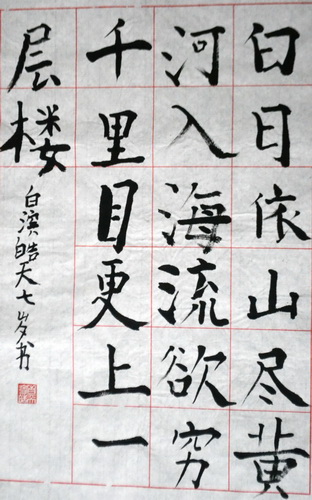 白日依山尽黄
河入海流欲穷
千里目更上一
层楼
白滨皓天七岁书